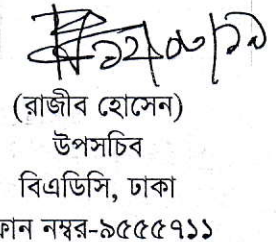 ১২/০৮/১৯
(রাজীব হোসেন)
উপসচিব
বিএডিসি, ঢাকা
ফোন নম্বর-৯৫৫৫৭১১